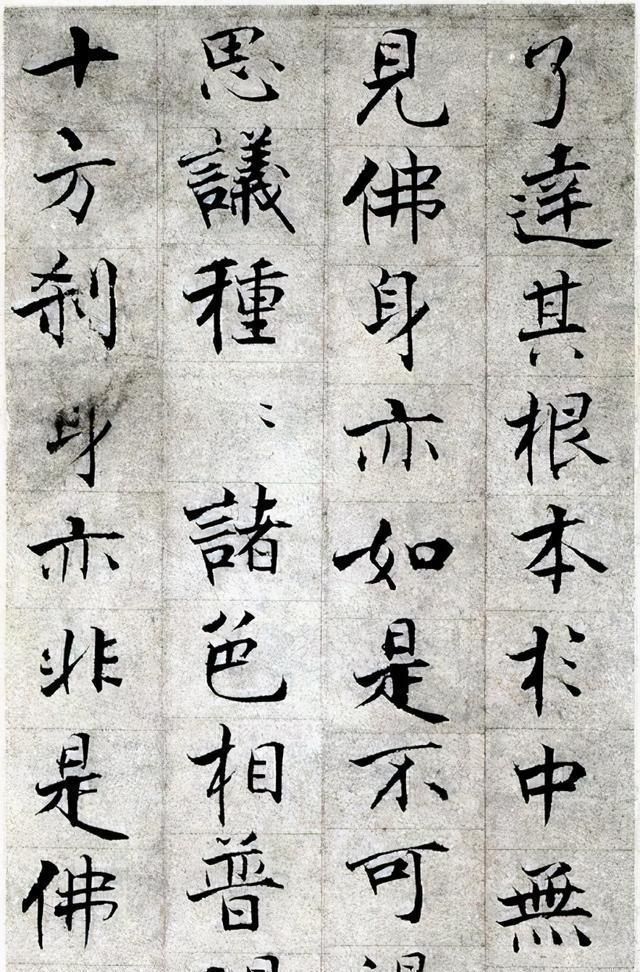 了達其根本於中無
見佛身亦如是不可
思議種〻諸色相普
十方刹身亦非是佛